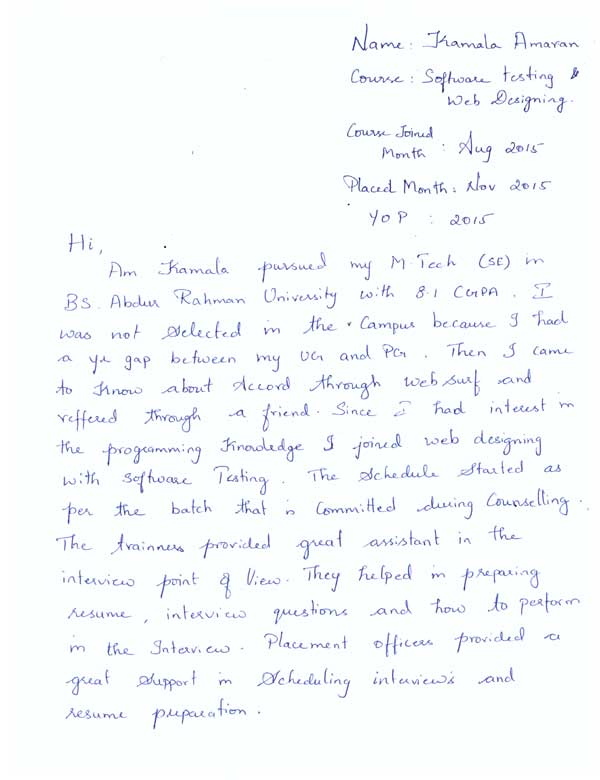 Name: Kamala Amaran
Course: Software testing &
Web Designing.
Course Joined
Month : Aug 2015
Placed Month: Nov 2015
YOP : 2015
Hi,
Am Kamala pursued my M.Tech (SE) in
BS. Abdur Rahman University with 8.1 CGPA. I
was not selected in the Campus because I had
a yr gap between my UG and PG. Then I came
to know about Accord through web surf and
reffered through a friend. Since I had interest in
the programming Knowledge I joined web designing
with Software Testing. The Schedule Started as
per the batch that is Committed during Counselling.
The trainners provided great assistant in the
interview point of View. They helped in preparing
resume, interview questions and how to perform
in the Interview. Placement officers provided a
great Support in Scheduling interviews and
resume preparation.